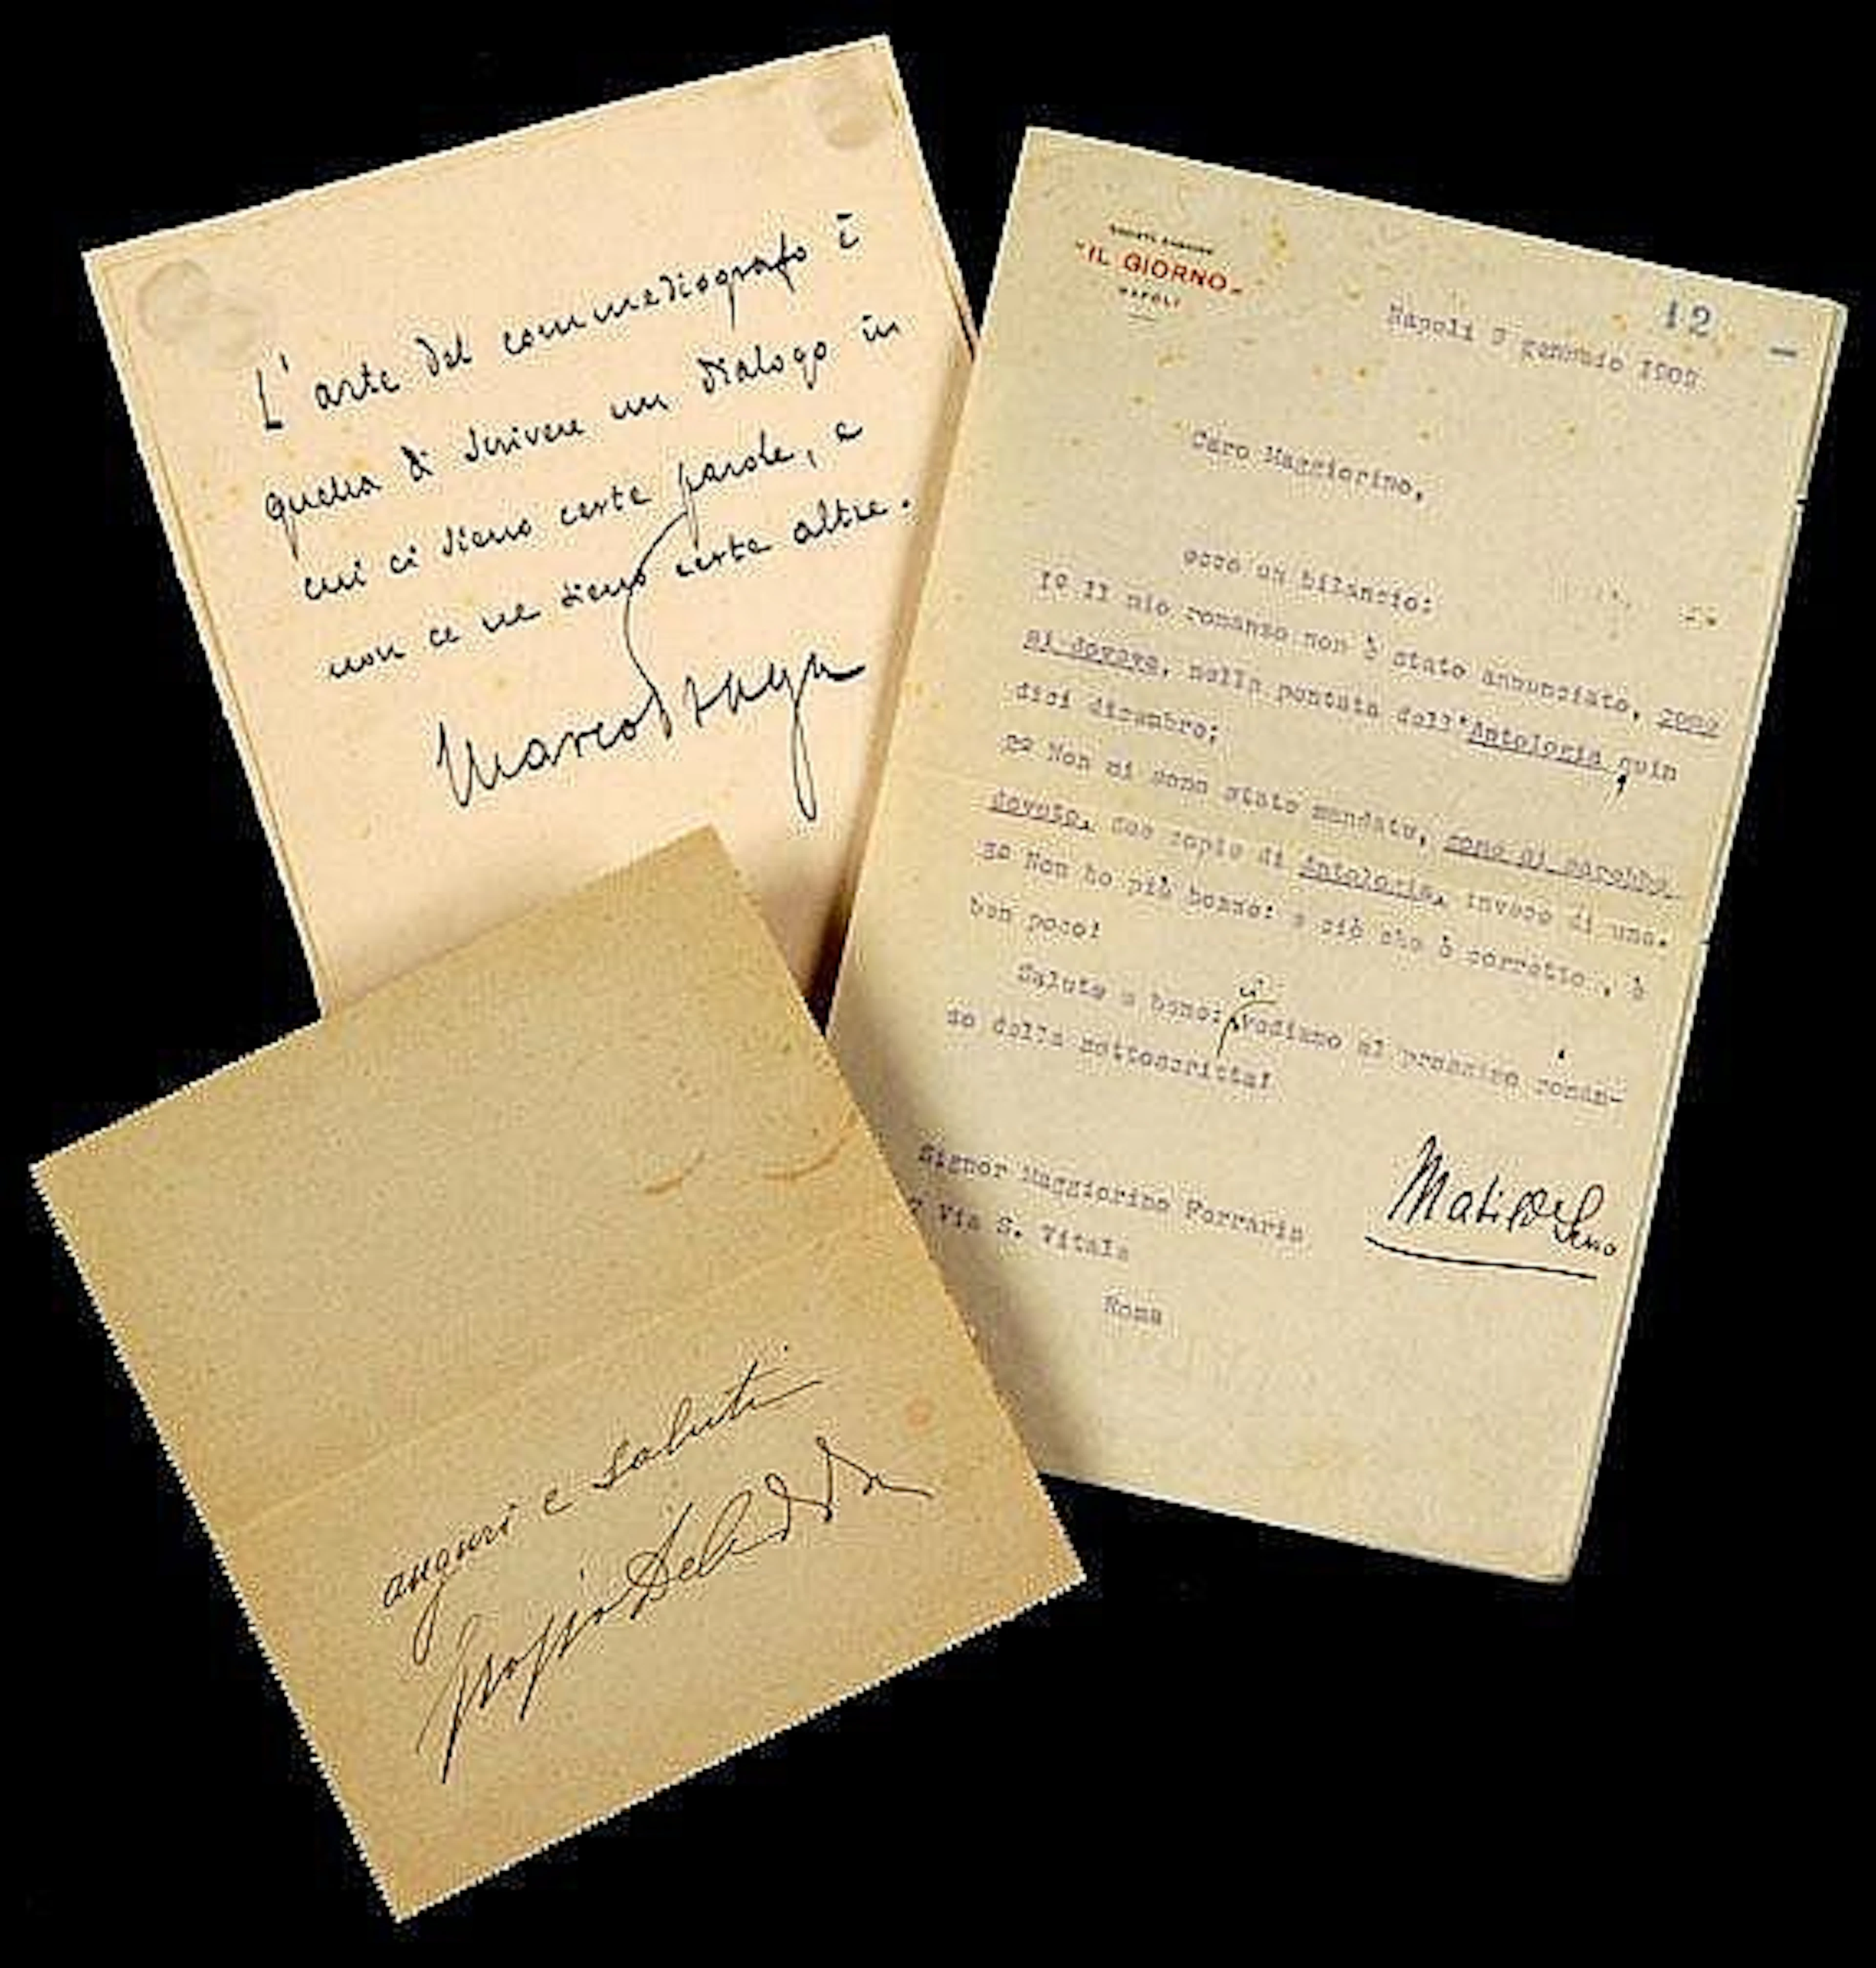 L'arte del commediografo è
quella di scrivere un dialogo in
cui ci sieno certe parole, e
non ce ne sieno certe altre.
Marco Praga
SOCIETÀ ANONIMA
"IL GIORNO"
NAPOLI
12
Napoli 9 gennaio
Caro Maggiorino,
ecco un bilancio:
1º Il mio romanzo non è stato annunziato, come
si doveva, nella puntata dell'Antologia quin
dici dicembre;
2º Non mi sono state mandate, come si sarebbe
dovuto, due copie di Antologia, invece di una.
3º Non ho più bozze: e ciò che è corretto, è
ben poco!
Salute e bene: ci vediamo al prossimo roman-
zo della sottoscritta!
Matilde Serao
Signor Maggiorino Ferraris
7 Via S. Vitale
Roma
auguri e saluti
Grazia Deledda